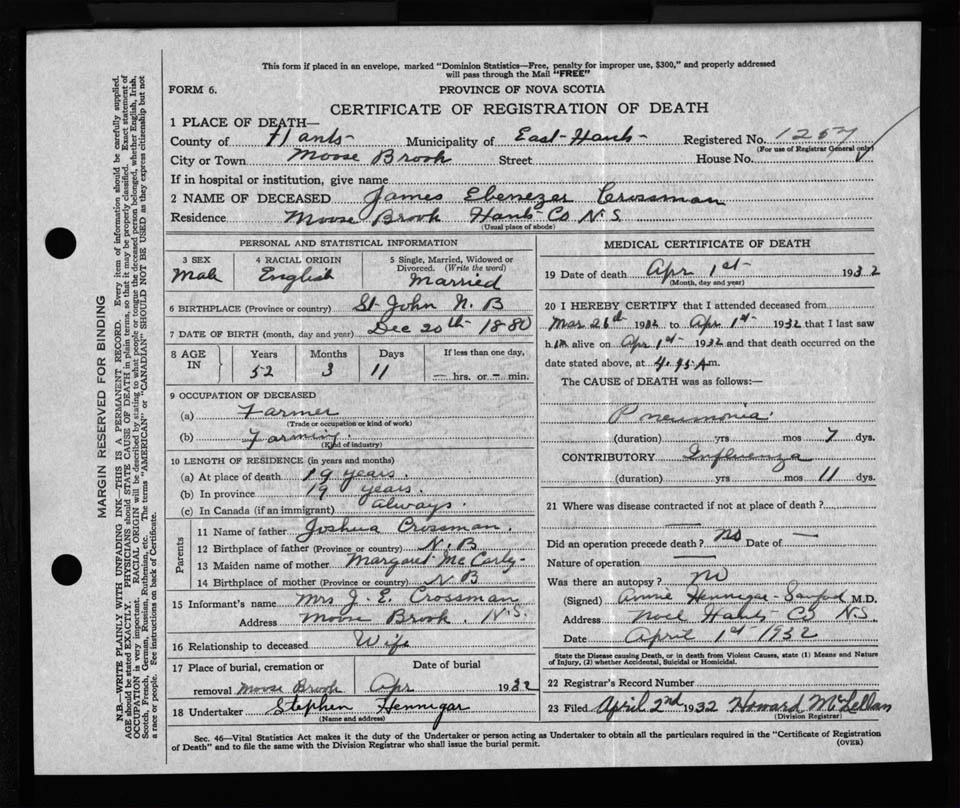 This form if placed in an envelope, marked "Dominion Statistics—Free, penalty for improper use, $300," and properly addressed
will pass through the Mail "FREE"
FORM 6. PROVINCE OF NOVA SCOTIA
CERTIFICATE OF REGISTRATION OF DEATH
1 PLACE OF DEATH—
County of Hants Municipality of East-Hants Registered No. 1257
(For use of Registrar General only)
City or Town Moose Brook Street House No.
If in hospital or institution, give name
2 NAME OF DECEASED James Ebenezer Crossman
Residence Moose Brook Hants Co N.S
(Usual place of abode)
MARGIN RESERVED FOR BINDING
N.B.—WRITE PLAINLY WITH UNFADING INK—THIS IS A PERMANENT RECORD. Every item of information should be carefully supplied.
AGE should be stated EXACTLY. PHYSICIANS should STATE CAUSE OF DEATH in plain terms, so that it may be properly classified. Exact statement of
OCCUPATION is very important. RACIAL ORIGIN will be described by stating to what people or tongue the deceased person belonged, whether English, Irish,
Scotch, French, German, Russian, Ruthenian, etc. The terms "AMERICAN" or "CANADIAN" SHOULD NOT BE USED as they express citizenship but not
a race or people. See instructions on back of Certificate.
PERSONAL AND STATISTICAL INFORMATION
3 SEX
Male
4 RACIAL ORIGIN
English
5 Single, Married, Widowed or
Divorced. (Write the word)
Married
6 BIRTHPLACE (Province or country) St John N.B
7 DATE OF BIRTH (month, day and year) Dec 20th 1880
8 AGE IN
Years Months Days If less than one day,
52 3 11 — hrs. or — min.
9 OCCUPATION OF DECEASED
(a) Farmer
(Trade or occupation or kind of work)
(b) Farming
(Kind of industry)
10 LENGTH OF RESIDENCE (in years and months)
(a) At place of death 19 years.
(b) In province 19 years.
(c) In Canada (if an immigrant) always.
Parents
11 Name of father Joshua Crossman.
12 Birthplace of father (Province or country) N.B
13 Maiden name of mother Margaret McCarty
14 Birthplace of mother (Province or country) N B
15 Informant's name Mrs J. E. Crossman
Address Moose Brook. N.S.
16 Relationship to deceased Wife
17 Place of burial, cremation or Date of burial
removal Moose Brook Apr 1932
18 Undertaker Stephen Hennigar
(Name and address)
MEDICAL CERTIFICATE OF DEATH
19 Date of death Apr 1st 1932
(Month, day and year)
20 I HEREBY CERTIFY that I attended deceased from
Mar 26th 1932 to Apr 1st 1932 that I last saw
him alive on Apr 1st 1932 and that death occurred on the
date stated above, at m.
The CAUSE of DEATH was as follows:—
Pneumonia
(duration) yrs mos 7 dys.
CONTRIBUTORY Influenza
(duration) yrs mos 11 dys.
21 Where was disease contracted if not at place of death?
—
Did an operation precede death? no Date of —
Nature of operation —
Was there an autopsy? no
(Signed) Annie Hennigar-Sanford M.D.
Address Noel Hants Co NS
Date April 1st 1932
State the Disease causing Death, or in death from Violent Causes, state (1) Means and Nature
of Injury, (2) whether Accidental, Suicidal or Homicidal.
22 Registrar's Record Number
23 Filed April 2nd 1932 Howard McLellan
(Division Registrar)
Sec. 46—Vital Statistics Act makes it the duty of the Undertaker or person acting as Undertaker to obtain all the particulars required in the "Certificate of Registration
of Death" and to file the same with the Division Registrar who shall issue the burial permit. (OVER)